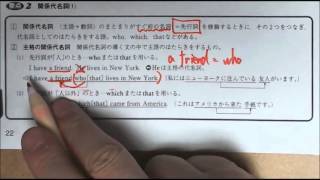 要点 2 関係代名詞(1)
① 関係代名詞 〈主語+動詞〉のまとまりが すぐ前の名詞 =先行詞 を修飾するときに、その2つをつなぎ、
代名詞としてのはたらきをする who, which, that などがある。
② 主格の関係代名詞 関係代名詞に導く文の中で主語のはたらきをするもの。
(1) 先行詞が「人」のとき who または that を用いる。
a friend = who
I have a friend. He lives in New York. →He は主格の代名詞。
I have a friend who[that] lives in New York. (私にはニューヨークに住んでいる友人がいます。)
(2) 先行詞が「人以外」のとき which または that を用いる。
which[that] came from America. (これはアメリカから来た手紙です。)
22